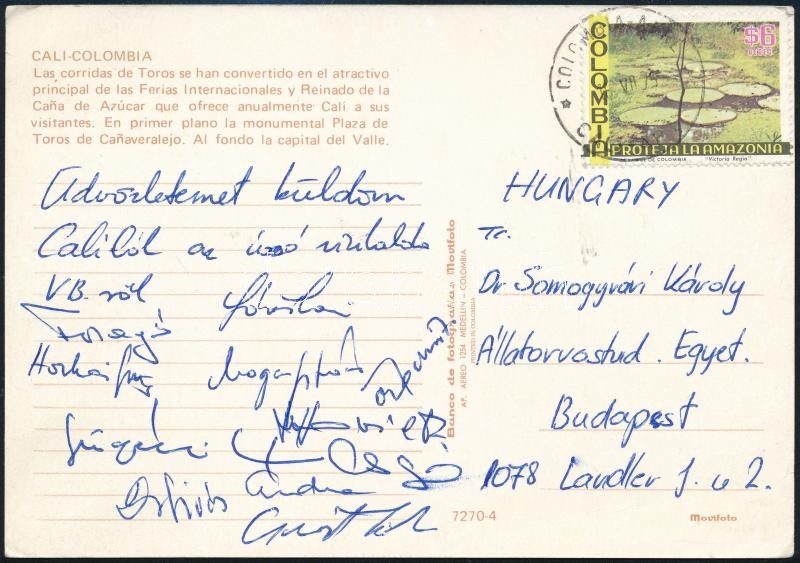 CALI-COLOMBIA
Las corridas de Toros se han convertido en el atractivo
principal de las Ferias Internacionales y Reinado de la
Caña de Azúcar que ofrece anualmente Cali a sus
visitantes. En primer plano la monumental Plaza de
Toros de Cañaveralejo. Al fondo la capital del Valle.
Üdvözletemet küldöm
Caliból az úszó vizilabda
VB-ről
Faragó
Horkai
András
7270-4
Banco de fotografías Movifoto
AP. AEREO 1254 MEDELLIN - COLOMBIA
PRINTED IN COLOMBIA
COLOMBIA
$6
PROTEJA LA AMAZONIA
DE COLOMBIA "Victoria Regia"
COLOMBIA
VII 75
HUNGARY
Dr. Somogyvári Károly
Állatorvostud. Egyet.
Budapest
1078 Landler J. u 2.
Movifoto